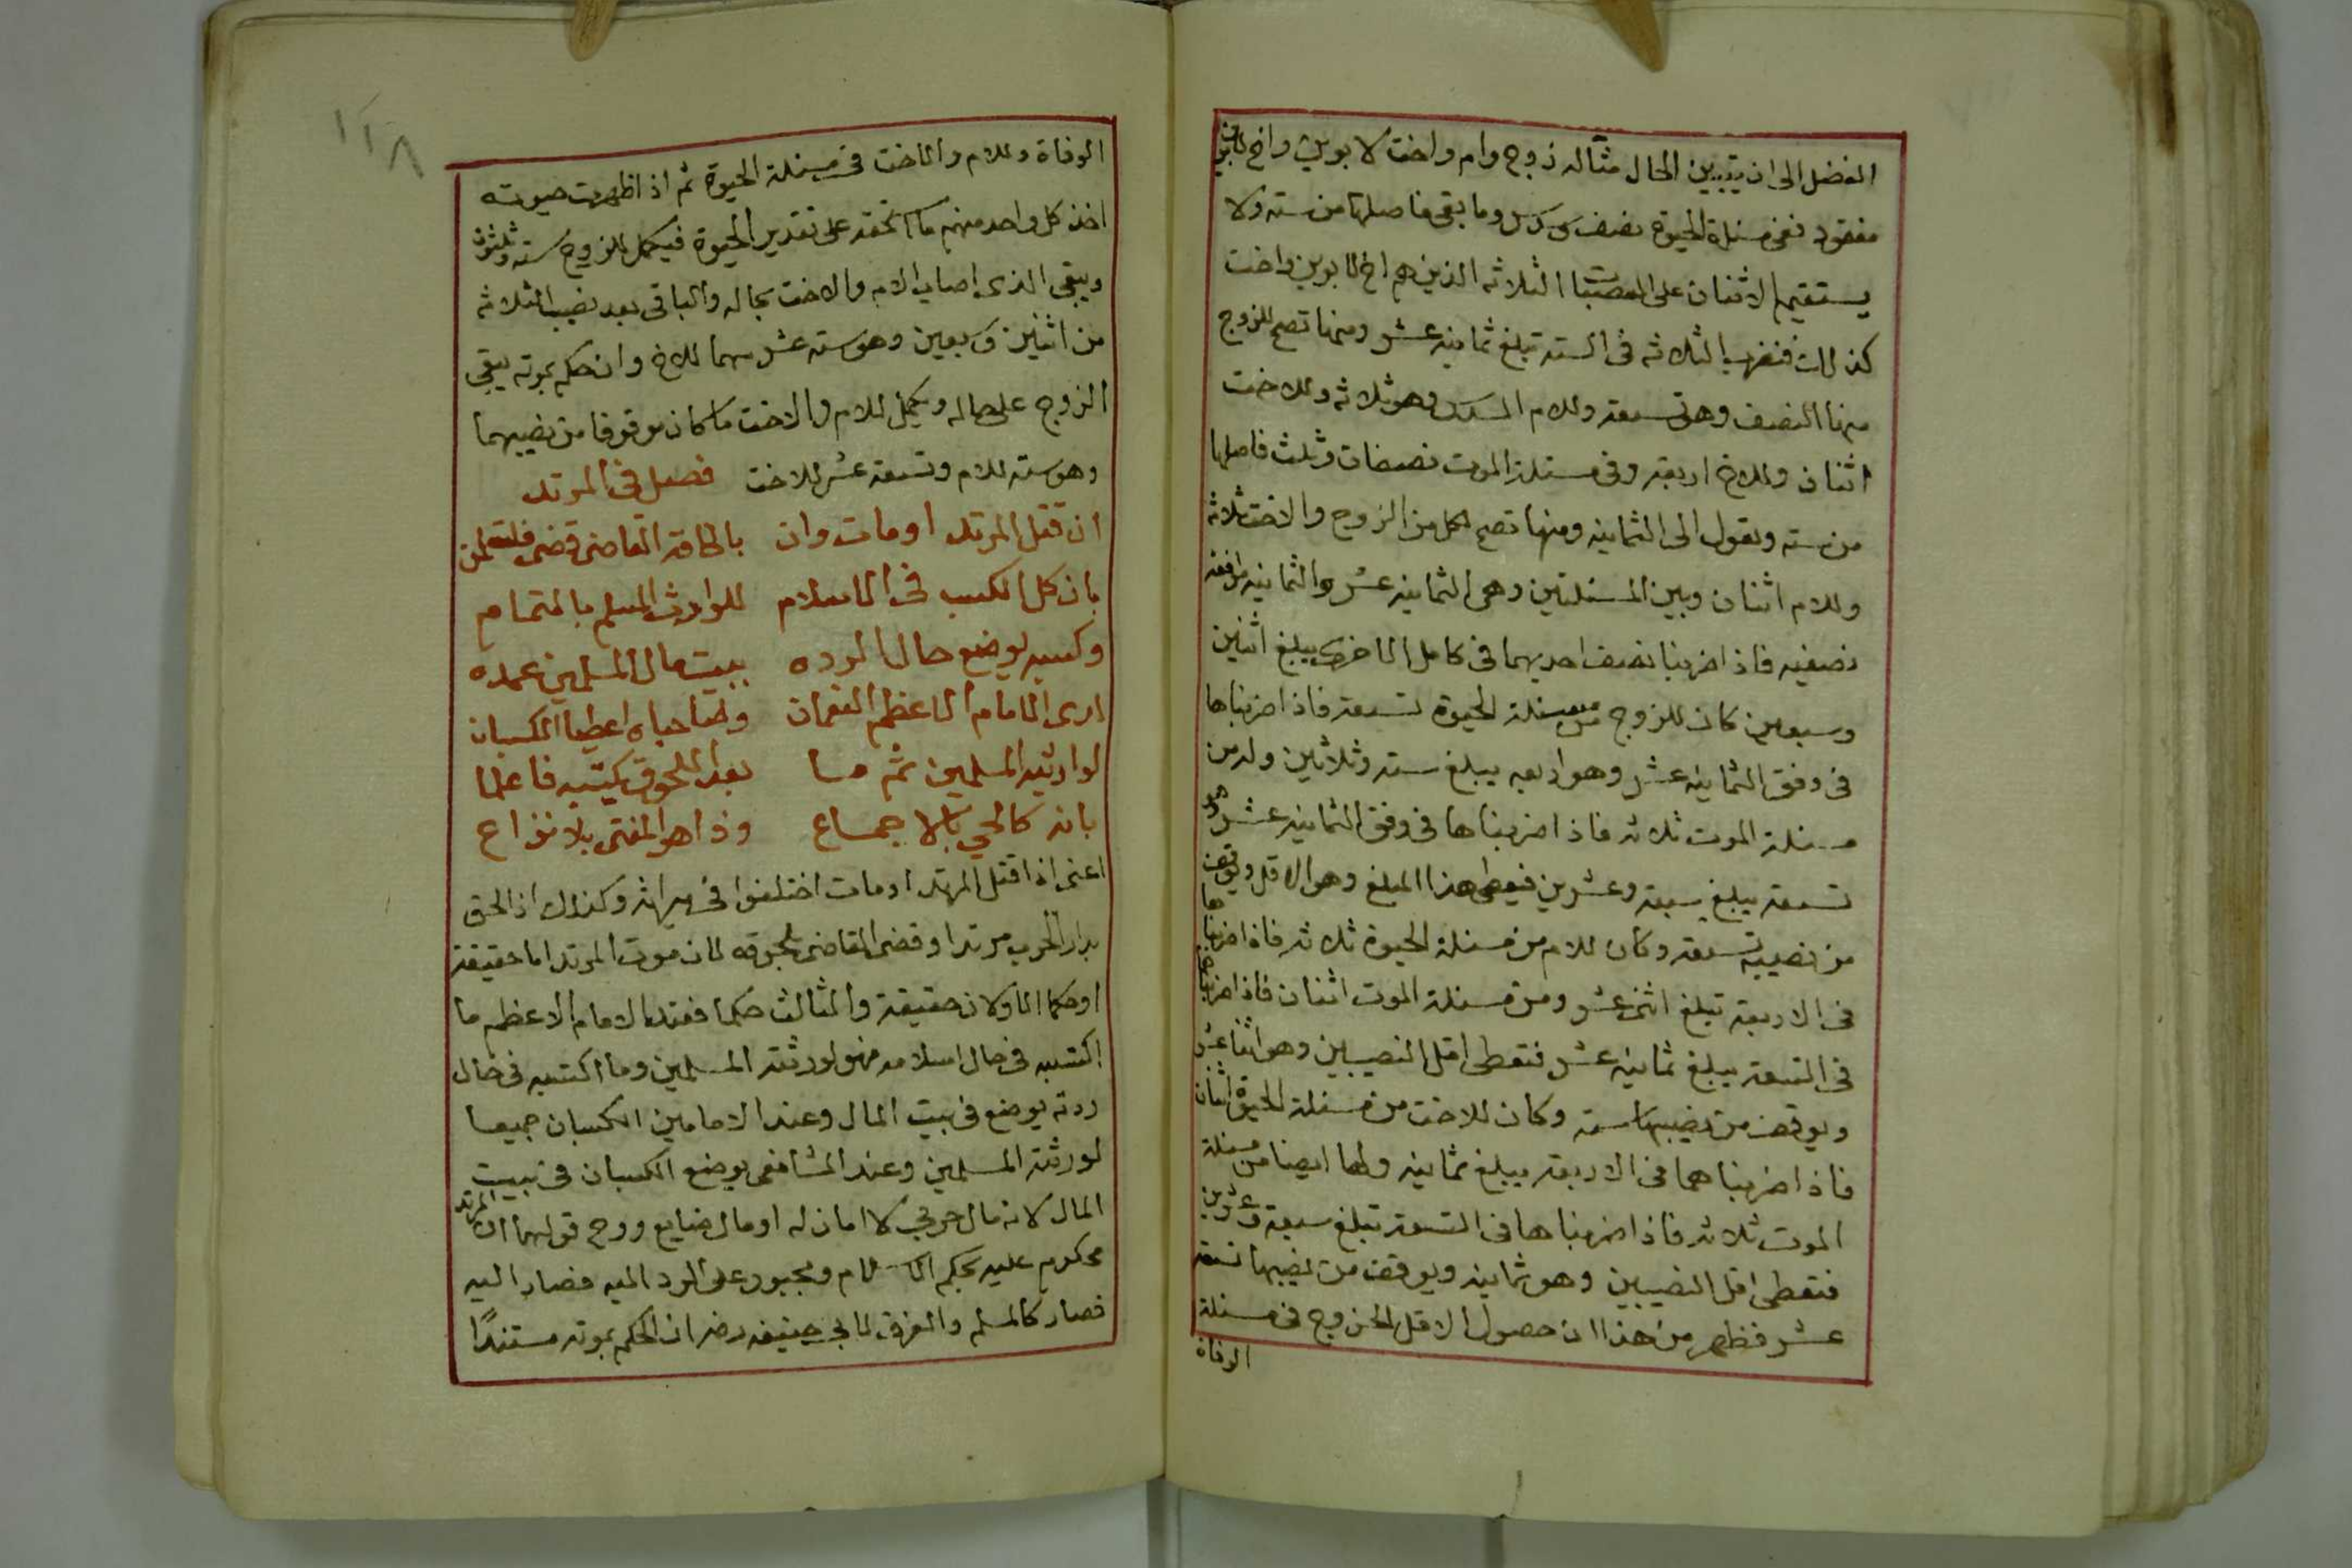 الفضل الى ان يتبين الحال مثاله زوج وام واخت لابوين واخ لابوين
مفقود ففى مسئلة الحيوة نصف وسدس وما بقى فاصلها من سته ولا
يستقيم الاثنان على الثلاثه الذين هم اخ لابوين واخت
كذلك فنضرب الثلاثه فى السته تبلغ ثمانيه عشر ومنها تصح للزوج
منها النصف وهو تسعة وللام السدس وهو ثلاثه وللاخت
اثنان وللاخ اربعة وفى مسئلة الموت نصفان وثلث فاصلها
من سته وتعول الى الثمانيه ومنها تصح لكل من الزوج والاخت ثلاثه
وللام اثنان وبين المسئلتين وهى الثمانيه عشر والثمانيه موافقه
نصفيه فاذا ضربنا نصف احديهما فى كامل الاخرى يبلغ اثنين
وسبعين كان للزوج من مسئلة الحيوة تسعة فاذا ضربناها
فى وفق الثمانيه عشر وهو اربعه يبلغ سته وثلاثين وله من
مسئلة الموت ثلاثه فاذا ضربناها فى وفق الثمانيه عشر وهو
تسعة يبلغ سبعة وعشرين فيعطى هذا المبلغ وهو الاقل ويوقف
من نصيبه تسعة وكان للام من مسئلة الحيوة ثلاثه فاذا ضربناها
فى الاربعة تبلغ اثنى عشر ومن مسئلة الموت اثنان فاذا ضربناهما
فى التسعة يبلغ ثمانيه عشر فتعطى اقل النصيبين وهو اثنا عشر
ويوقف من نصيبها سته وكان للاخت من مسئلة الحيوة اثنان
فاذا ضربناهما فى الاربعة يبلغ ثمانيه ولها ايضا من مسئلة
الموت ثلاثه فاذا ضربناها فى التسعة تبلغ سبعة وعشرين
فتعطى اقل النصيبين وهو ثمانيه ويوقف من نصيبها تسعة
عشر فظهر من هذا ان حصول الاقل للزوج فى مسئلة
الوفاة
١٢٨
الوفاة وللام والاخت فى مسئلة الحيوة ثم اذا ظهرت حيوته
اخذ كل واحد منهم ما استحقه على تقدير الحيوة فيكمل للزوج سته وثلثون
ويبقى الذى اصاب الام والاخت بحاله والباقى بعد نصيب الثلاثه
من اثنين وسبعين وهو سته عشر سهما للاخ وان حكم بموته يبقى
الزوج على حاله ويكمل للام والاخت ما كان موقوفا من نصيبهما
وهو سته للام وتسعة عشر للاخت فصل فى المرتد
ان قتل المرتد او مات وان بالحاقه القاضى قضى
بان كل الكسب فى الاسلام للوارث المسلم بالتمام
وكسبه يوضع حال الرده ببيت مال المسلمين عمده
لدى الامام الاعظم النعمان وصاحباه اعطيا الكسبان
لوارثيه المسلمين ثم ما بعد اللحوق يكتسبه فاعلما
بانه كالحى بالاجماع وذا هو المفتى بلا نزاع
اعنى اذا قتل المرتد او مات اختلفوا فى ميراثه وكذلك اذا لحق
بدار الحرب مرتدا وقضى القاضى بلحوقه لان موت المرتد اما حقيقة
او حكما الاولان حقيقة والثالث حكما فعند الامام الاعظم ما
اكتسبه فى حال اسلامه فهو لورثته المسلمين وما اكتسبه فى حال
ردته يوضع فى بيت المال وعند الامامين الكسبان جميعا
لورثته المسلمين وعند الشافعى يوضع الكسبان فى بيت
المال لانه مال حربى لا امان له او مال ضايع ووجه قولهما ان المرتد
محكوم عليه بحكم الاسلام ومجبور على الرد اليه فصار اليه
فصار كالمسلم والفرق لابى حنيفه رضه ان الحكم بموته مستندًا